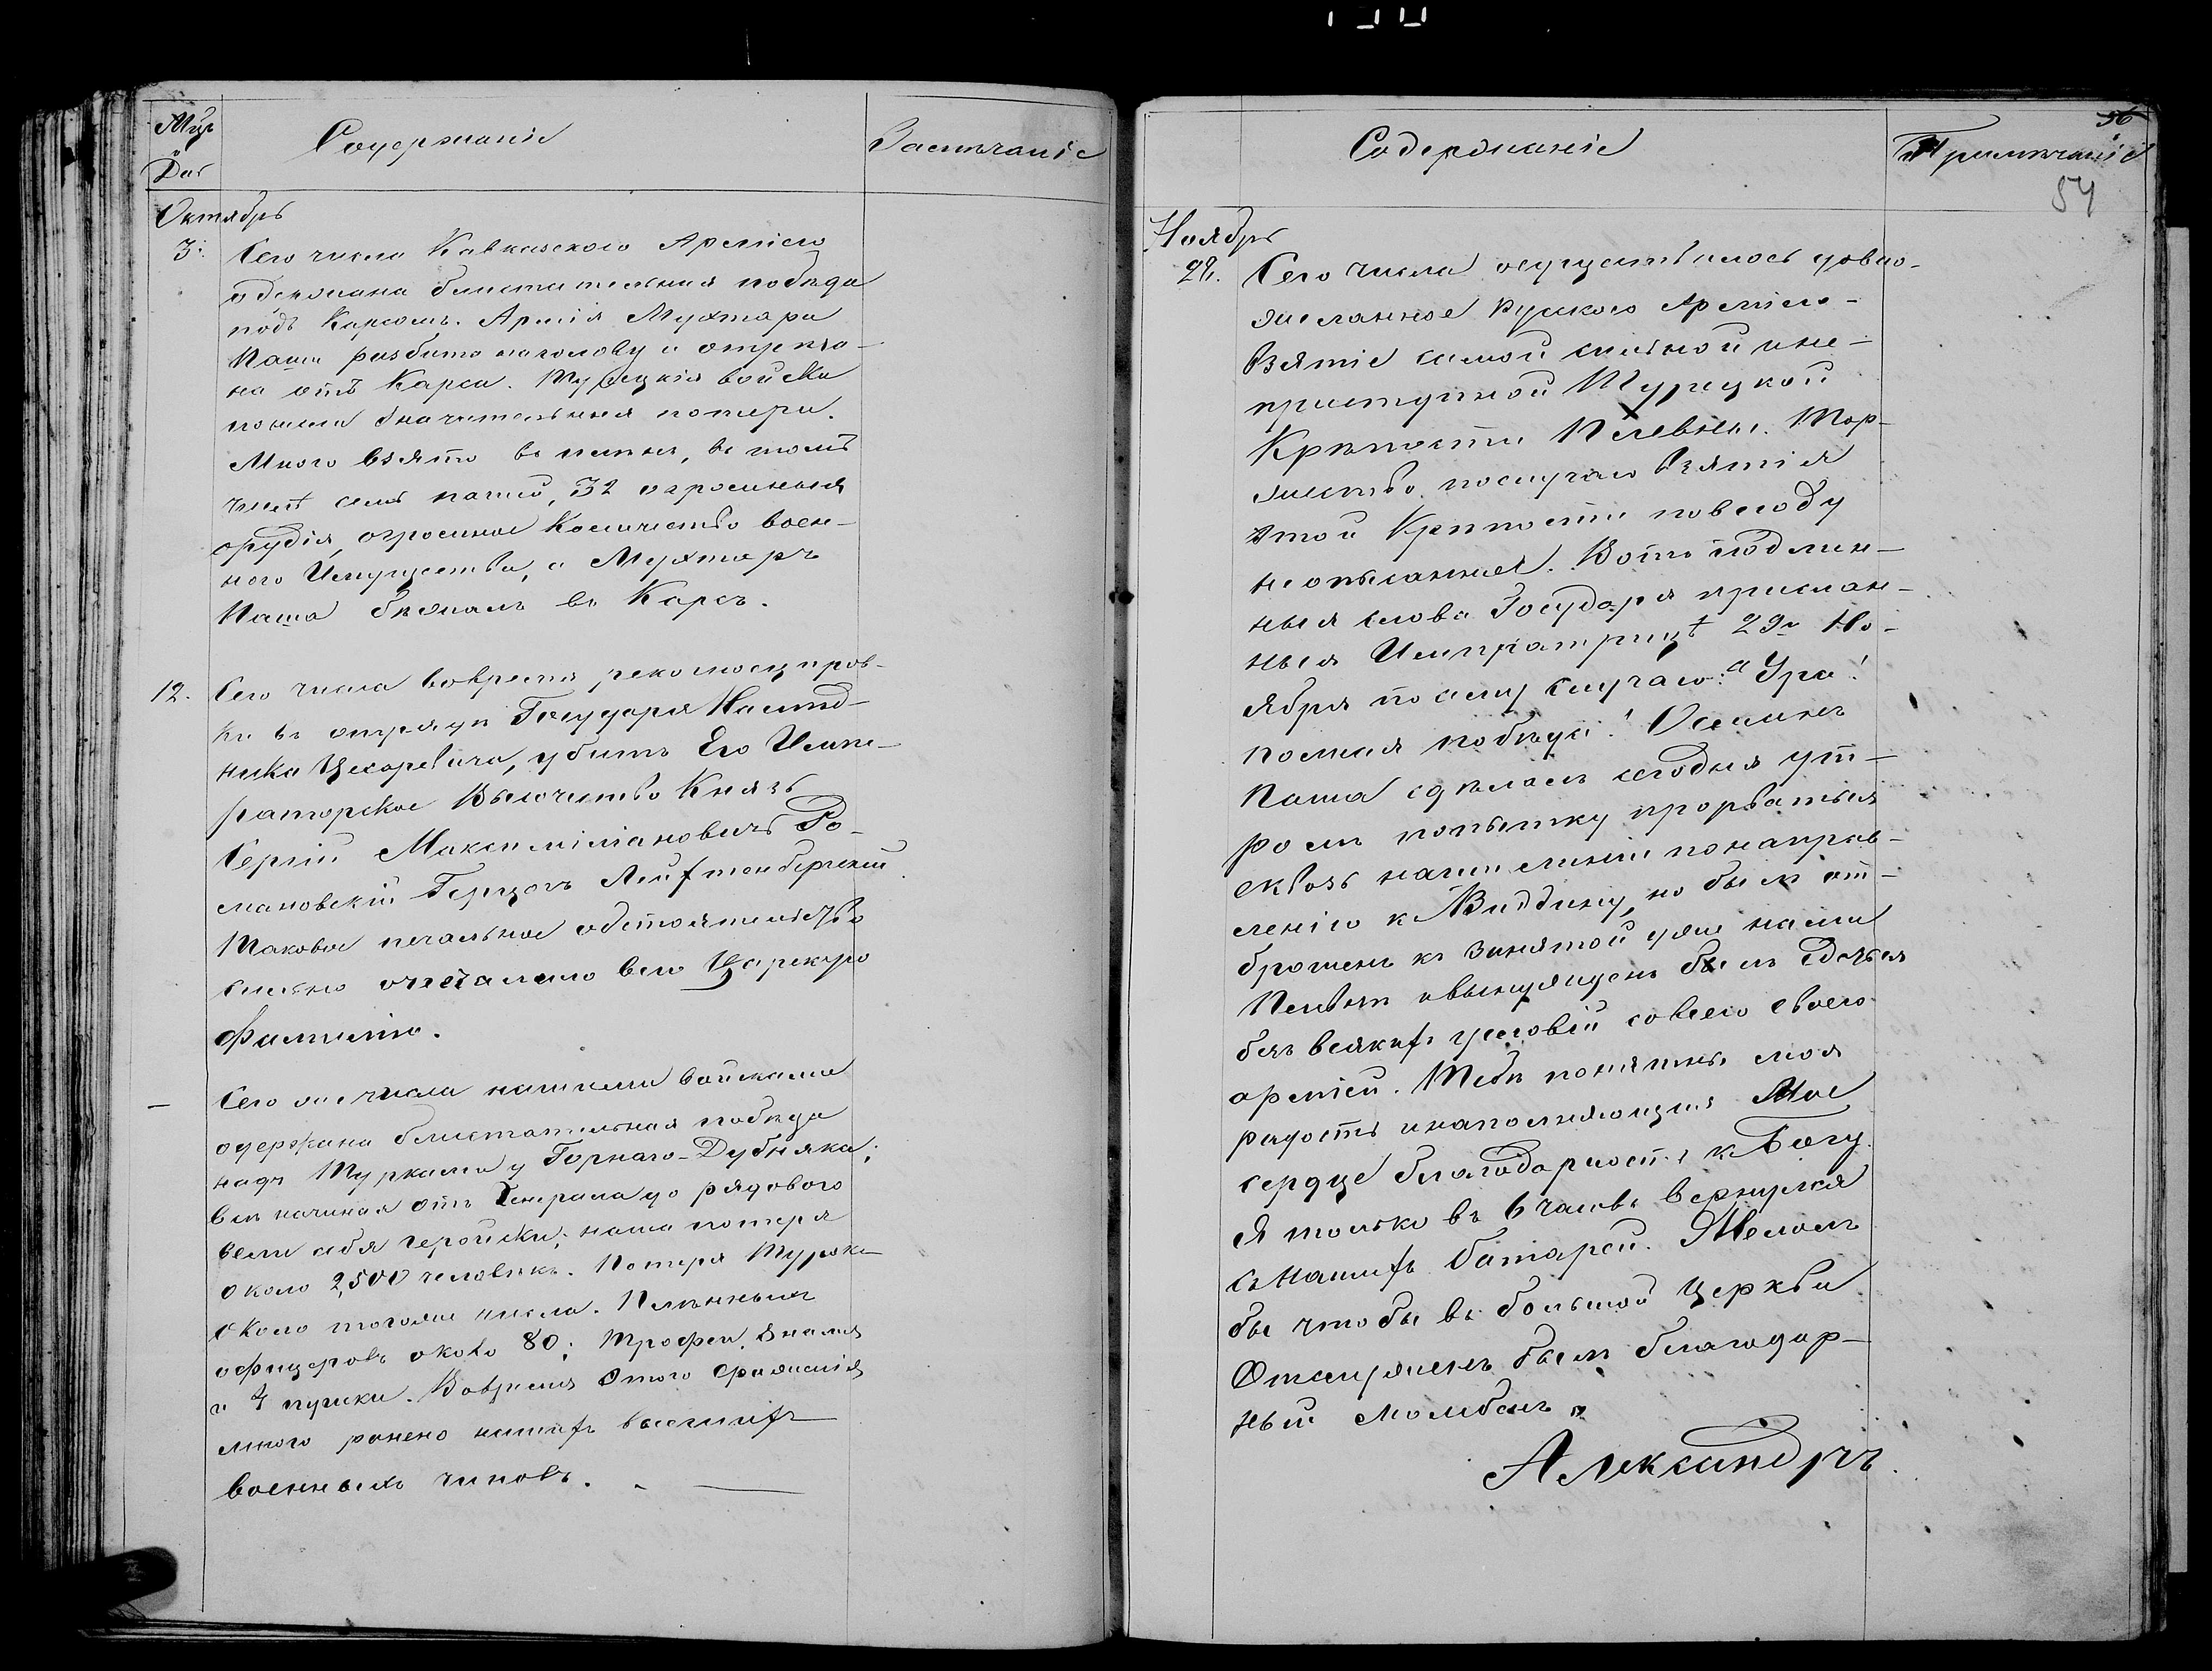 Мцъ
и
Дат
Содержаніе
Замѣчаніе
Октябрь
3. Сего числа Кавказскою Арміею
одержана блистательная побѣда
подъ Карсомъ. Армія Мухтара
Паши разбита наголову и отрѣза-
на отъ Карса. Турецкія войска
понесли значительныя потери.
Много взято въ плѣнъ, въ томъ
числѣ семь пашей, 32 огромныхъ
орудія, огромное количество воен-
наго Имущества, а Мухтаръ
Паша бѣжалъ въ Карсъ.
12. Сего числа вовремя рекогносцировъ-
ки въ отрядѣ Государя Наслѣд-
ника Цесаревича, убитъ Его Импе-
раторское Высочество Князь
Сергій Максимиліановичъ Ро-
мановскій Герцогъ Лейхтенбергскій.
Таковое печальное обстоятельство
сильно опечалило всю Царскую
фамилію.
— Сего же числа нашими войсками
одержана блистательная побѣда
надъ Турками у Горнаго-Дубняка;
всѣ начиная отъ Генерала до рядового
вели себя геройски; наша потеря
около 2,500 человѣкъ. Потеря Турокъ
около тогоже числа. Плѣнныхъ
офицеровъ около 80; трофеи, знамя
и 4 пушки. Вовремя этого сраженія
много ранено нашихъ высшихъ
военныхъ чиновъ. —
56
Содержаніе
Примѣчаніе
54
Ноябрь
28. Сего числа осуществилось давно-
желанное Рускою Арміею-
Взятіе самой сильной и не-
приступной Турецкой
Крѣпости Плевны. Тор-
жество по случаю взятія
этой Крѣпости повсюду
неописанное. Вотъ подлин-
ныя слова Государя прислан-
ныя Императрицѣ 29го Но-
ября по сему случаю: „Ура!
полная побѣда! Османъ
Паша сдѣлалъ сегодня ут-
ромъ попытку прорваться
сквозь наши линіи по направ-
ленію к Виддину, но былъ от-
брошенъ къ занятой уже нами
Плевнѣ и вынужденъ былъ сдаться
безъ всякихъ условій со всею своею
арміей. Тебѣ понятны моя
радость и наполняющая Мое
сердце благодарность к Богу.
Я только въ 6 часовъ вернулся
съ нашихъ батарей. Желалъ
бы чтобы въ большой церкви
отслуженъ былъ благодар-
ный молебенъ"
Александръ.